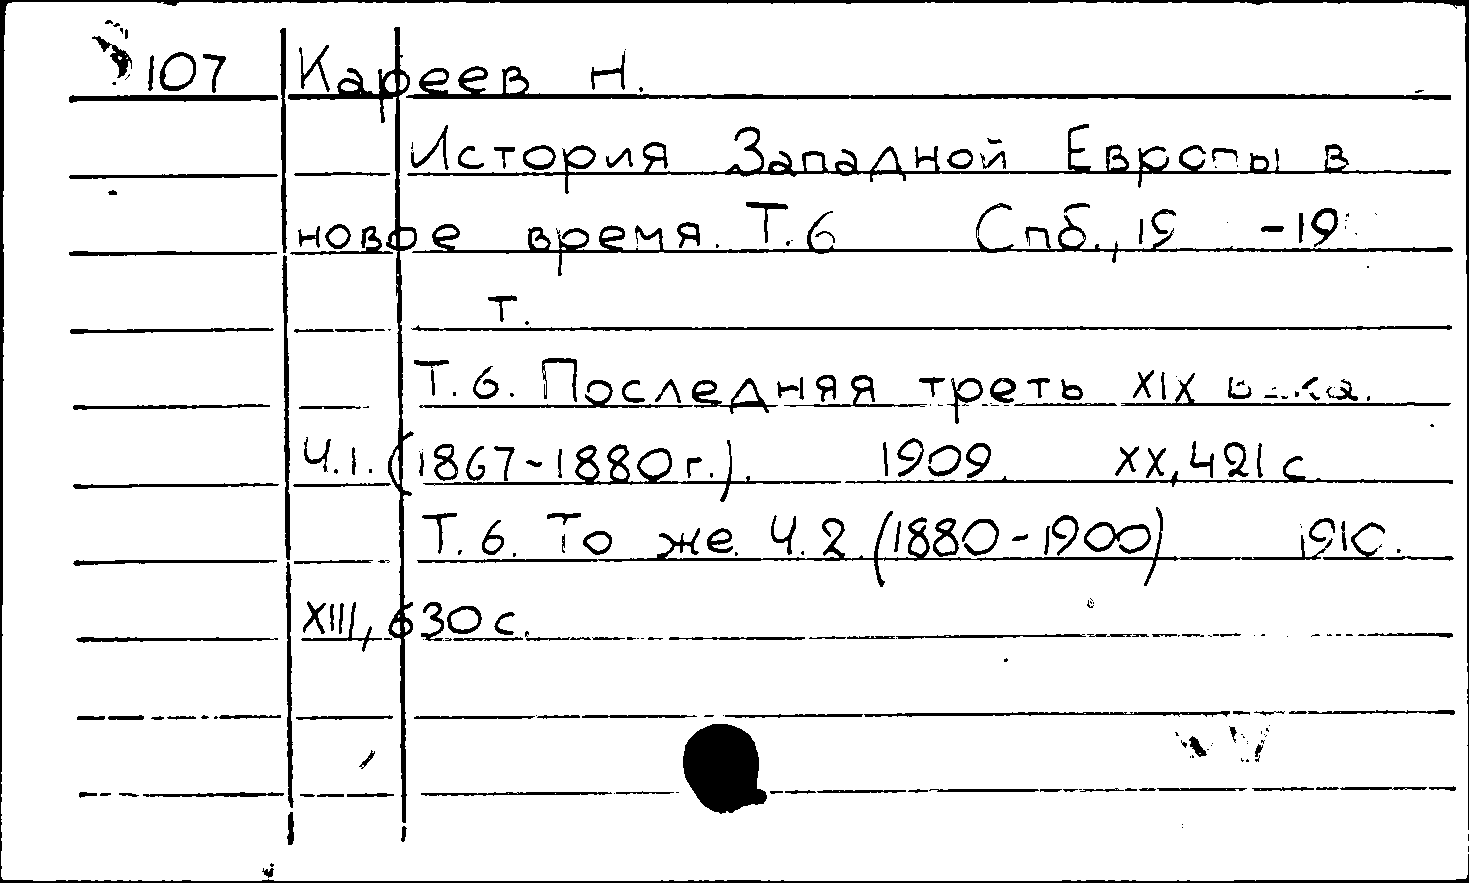 107 Кареев Н.
История Западной Европы в
новое время. Т.6 Спб., 19 -19
т.
Т.6. Последняя треть XIX века.
Ч.1. (1867-1880 г.). 1909. XX, 421 с.
Т.6. То же. Ч.2. (1880-1900) 1910.
XIII, 630 с.